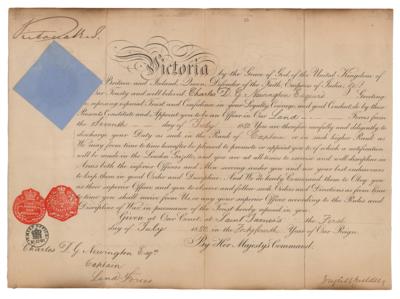 Victoria R.I.
Victoria by the Grace of God of the United Kingdom of
Britain and Ireland, Queen, Defender of the Faith, Empress of India, &c.
our Trusty and well beloved Charles D. G. Newington Esquire Greeting
reposing especial Trust and Confidence in your Loyalty, Courage, and good Conduct, do by these
Presents Constitute and Appoint you to be an Officer in Our Land Forces from
the day of 18 You are therefore carefully and diligently to
discharge your Duty as such in the Rank of Captain or in such higher Rank as
We may from time to time hereafter be pleased to promote or appoint you to of which a notification
will be made in the London Gazette, and you are at all times to exercise and well discipline in
Arms both the inferior Officers and Men serving under you and use your best endeavours
to keep them in good Order and Discipline. And We do hereby Command them to Obey you
as their superior Officer and you to observe and follow such Orders and Directions as from time
to time you shall receive from Us or any your superior Officer according to the Rules and
Discipline of War in pursuance of the Trust hereby reposed in you.
Given at Our Court, at Saint James's the First
day of July 18 in the Year of Our Reign.
By Her Majesty's Command.
Charles D G Newington Esqre
Captain
Land Forces